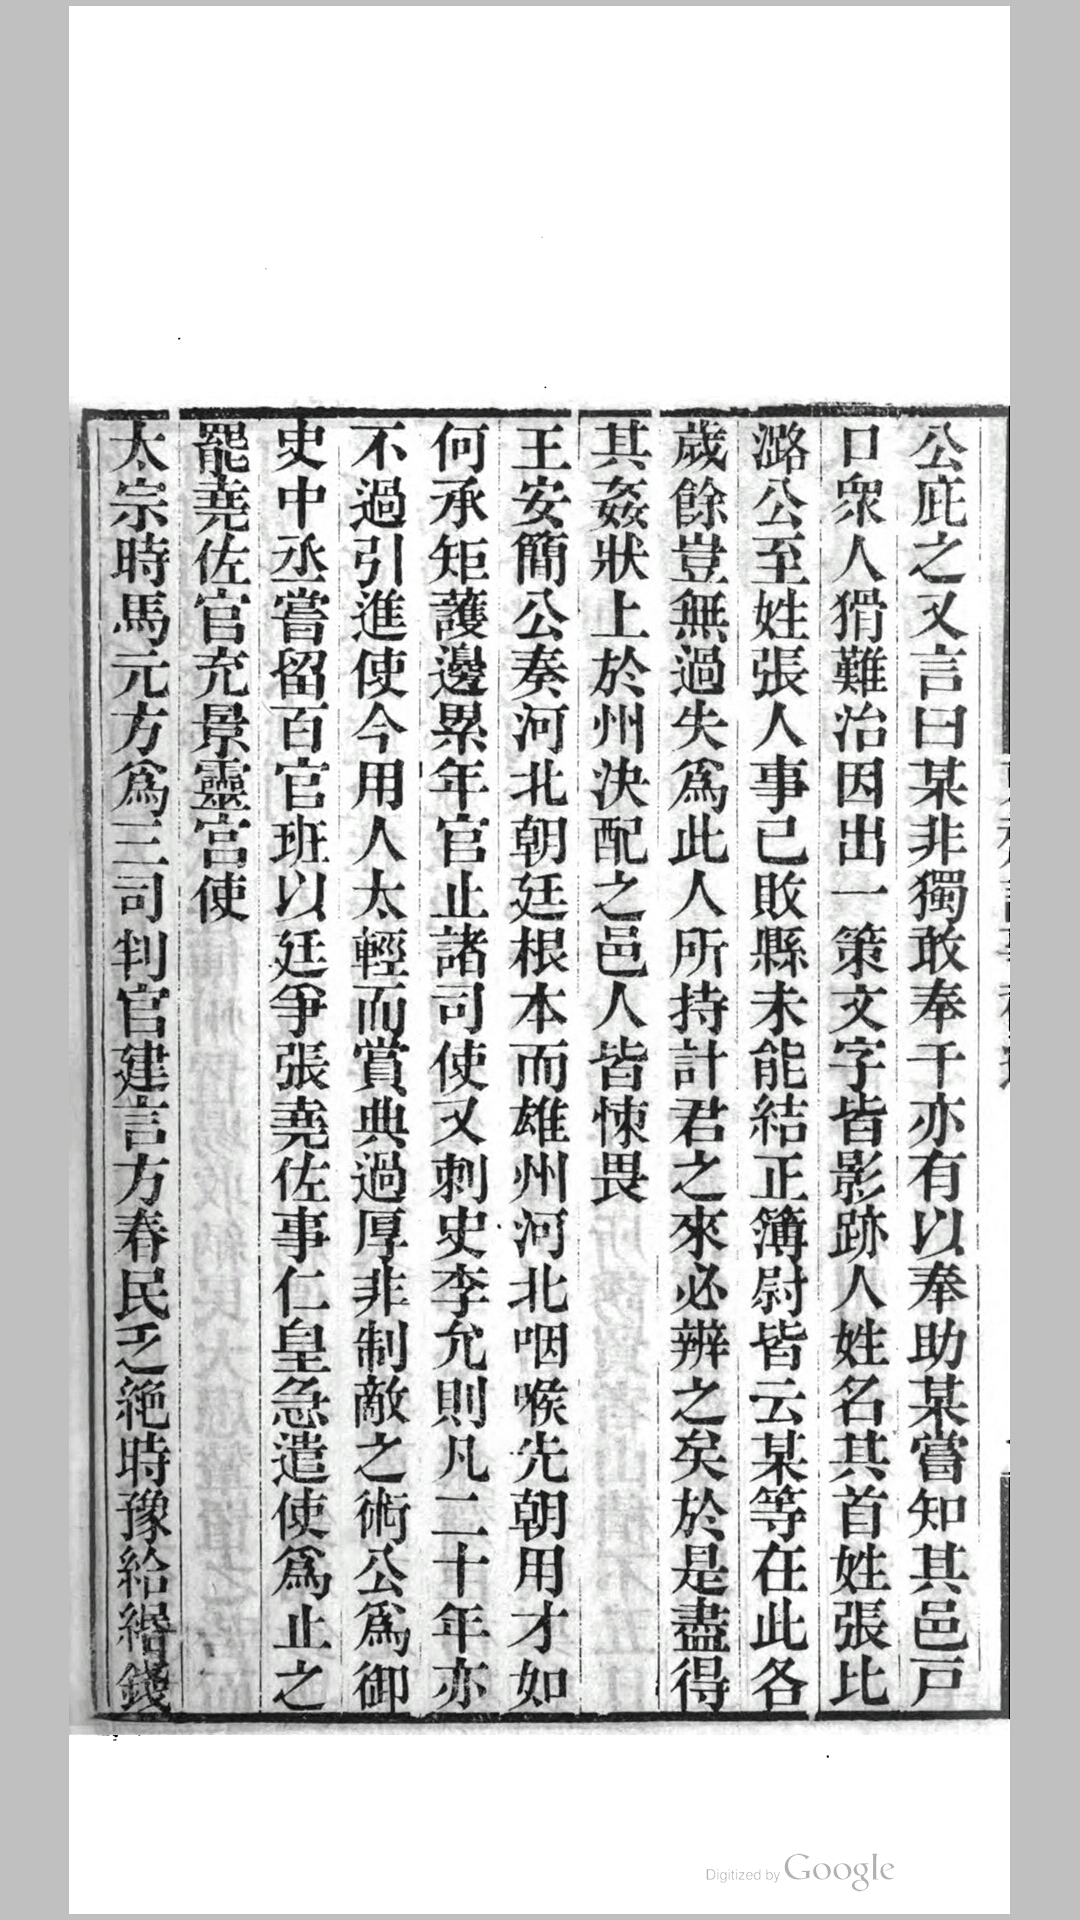 公庇之又言曰某非獨敢奉干亦有以奉助某嘗知其邑戸
口衆人猾難治因出一策文字皆影跡人姓名其首姓張比
潞公至姓張人事已敗縣未能結正簿尉皆云某等在此各
歲餘豈無過失爲此人所持計君之來必辨之矣於是盡得
其姦狀上於州決配之邑人皆悚畏
王安簡公奏河北朝廷根本而雄州河北咽喉先朝用才如
何承矩護邊累年官止諸司使又刺史李允則凡二十年亦
不過引進使今用人太輕而賞典過厚非制敵之術公爲御
史中丞嘗留百官班以廷爭張堯佐事仁皇急遣使爲止之
罷堯佐官充景靈宮使
太宗時馬元方爲三司判官建言方春民乏絶時豫給緡錢
Digitized by Google